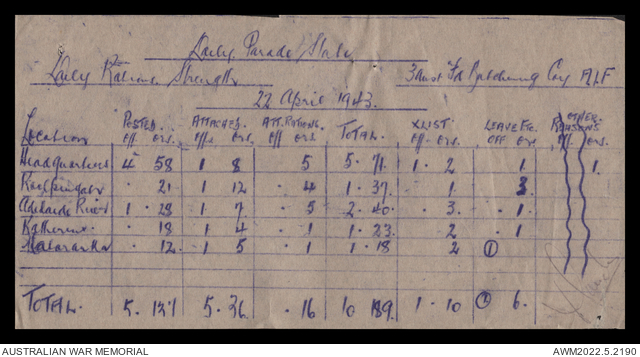 Daily Parade State
Daily Rations Strength 3 Aust Fd Butchering Coy AIF
22 April 1943.
POSTED. ATTACHED. ATT. RATIONS. TOTAL. X LIST. LEAVE Etc. OTHER REASONS
Location Off. Ors. Off. Ors. Off Ors. Off Ors. OFF Ors. Off. Ors.
Headquarters 4 58 1 8 5 5. 71. 1. 2 1 1.
. 21 1 12 . 4 1. 37. 1. 3.
Adelaide River 1. 28 1 7 . 5 2. 40. . 3. . 1.
Katherine. . 18 1 4 . 1 1. 23. . 2 . 1
Mataranka . 12. 1 5 . 1 1. 18 2 1
TOTAL. 5. 137 5. 36. . 16 10 189. 1. 10 6.
AUSTRALIAN WAR MEMORIAL AWM2022.5.2190